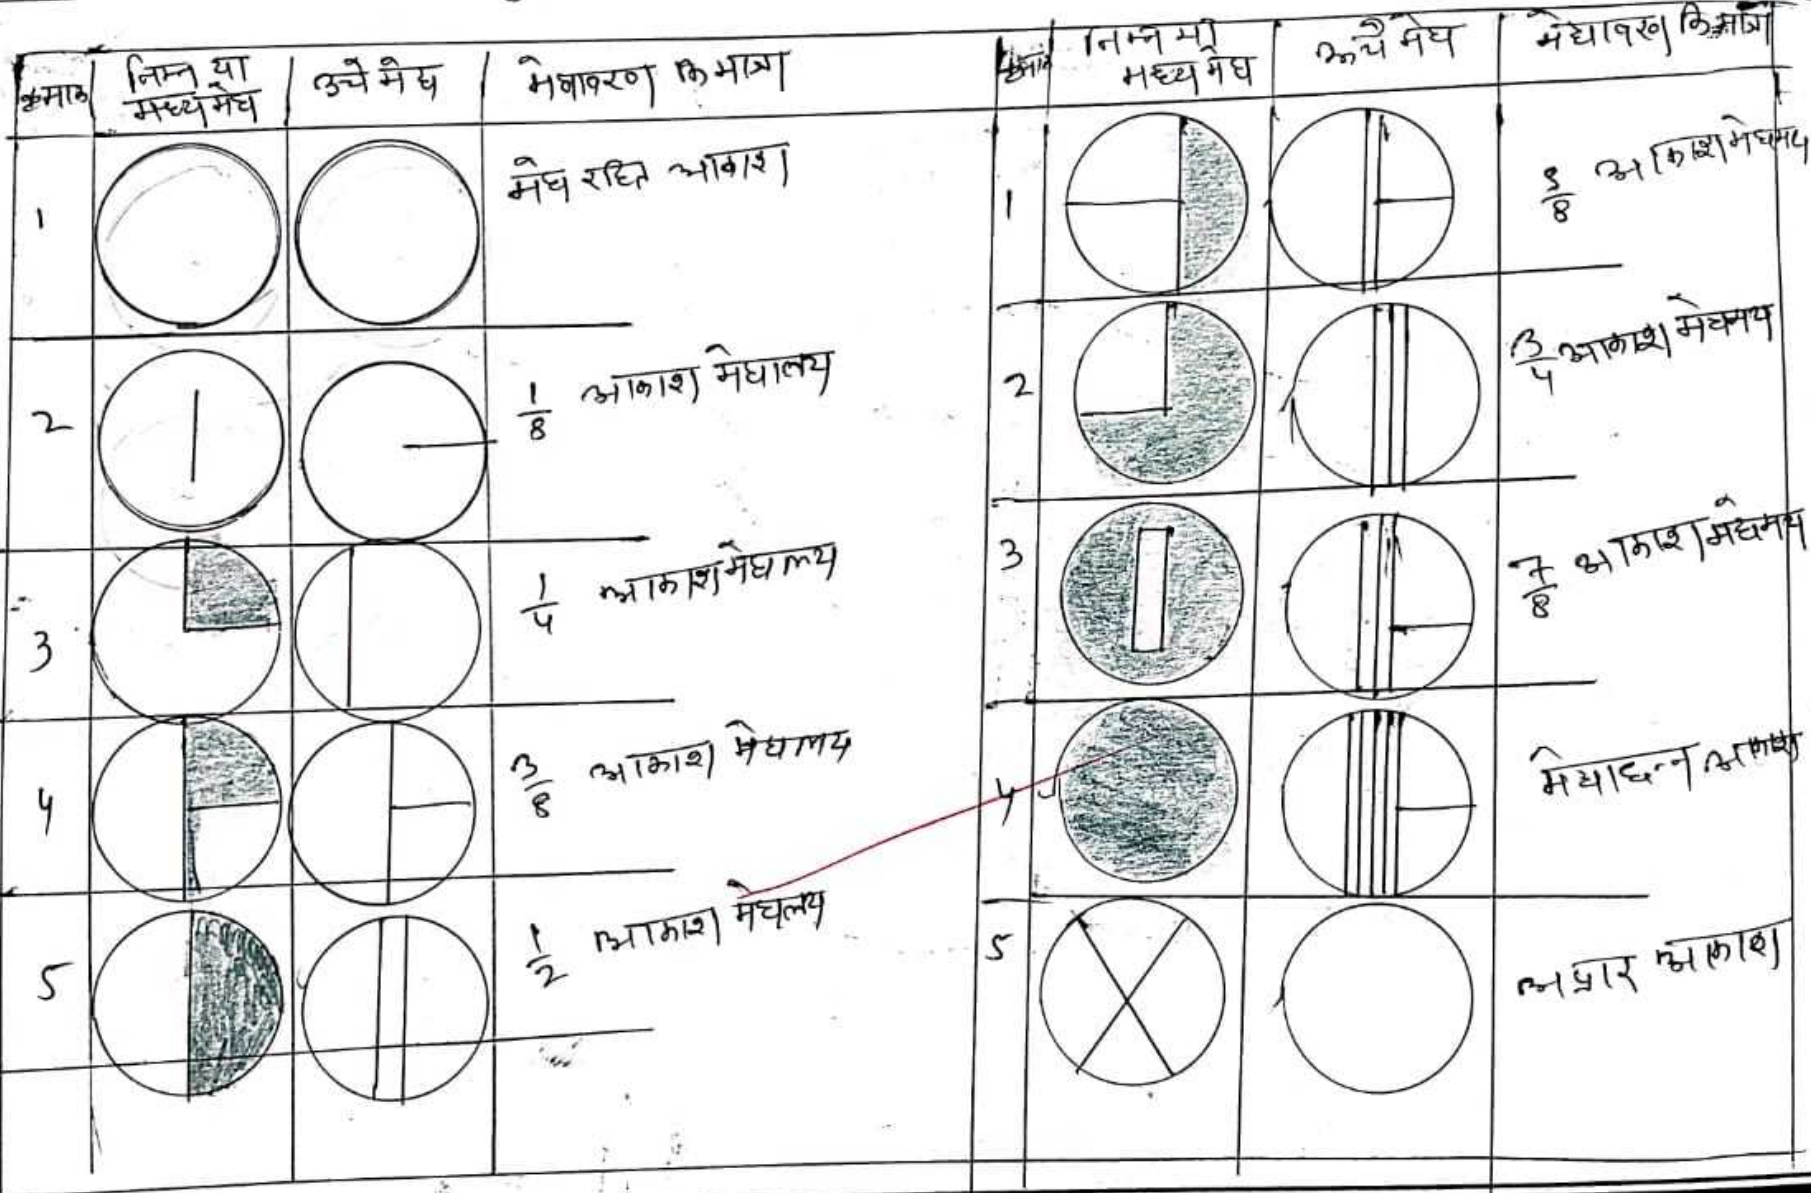 क्रमांक
निम्न या
मध्य मेघ
उचे मेघ
मेघावरण कि मात्रा
1
मेघ रहित आकाश
2
1/8 आकाश मेघालय
3
1/4 आकाश मेघलय
4
3/8 आकाश मेघलय
5
1/2 आकाश मेघलय
निम्न
मध्य मेघ
ऊचे मेघ
मेघावरण कि मात्रा
1
5/8 आकाश मेघमय
2
3/4 आकाश मेघमय
3
7/8 आकाश मेघमय
4
मेघाछन्न आकाश
5
आकाश